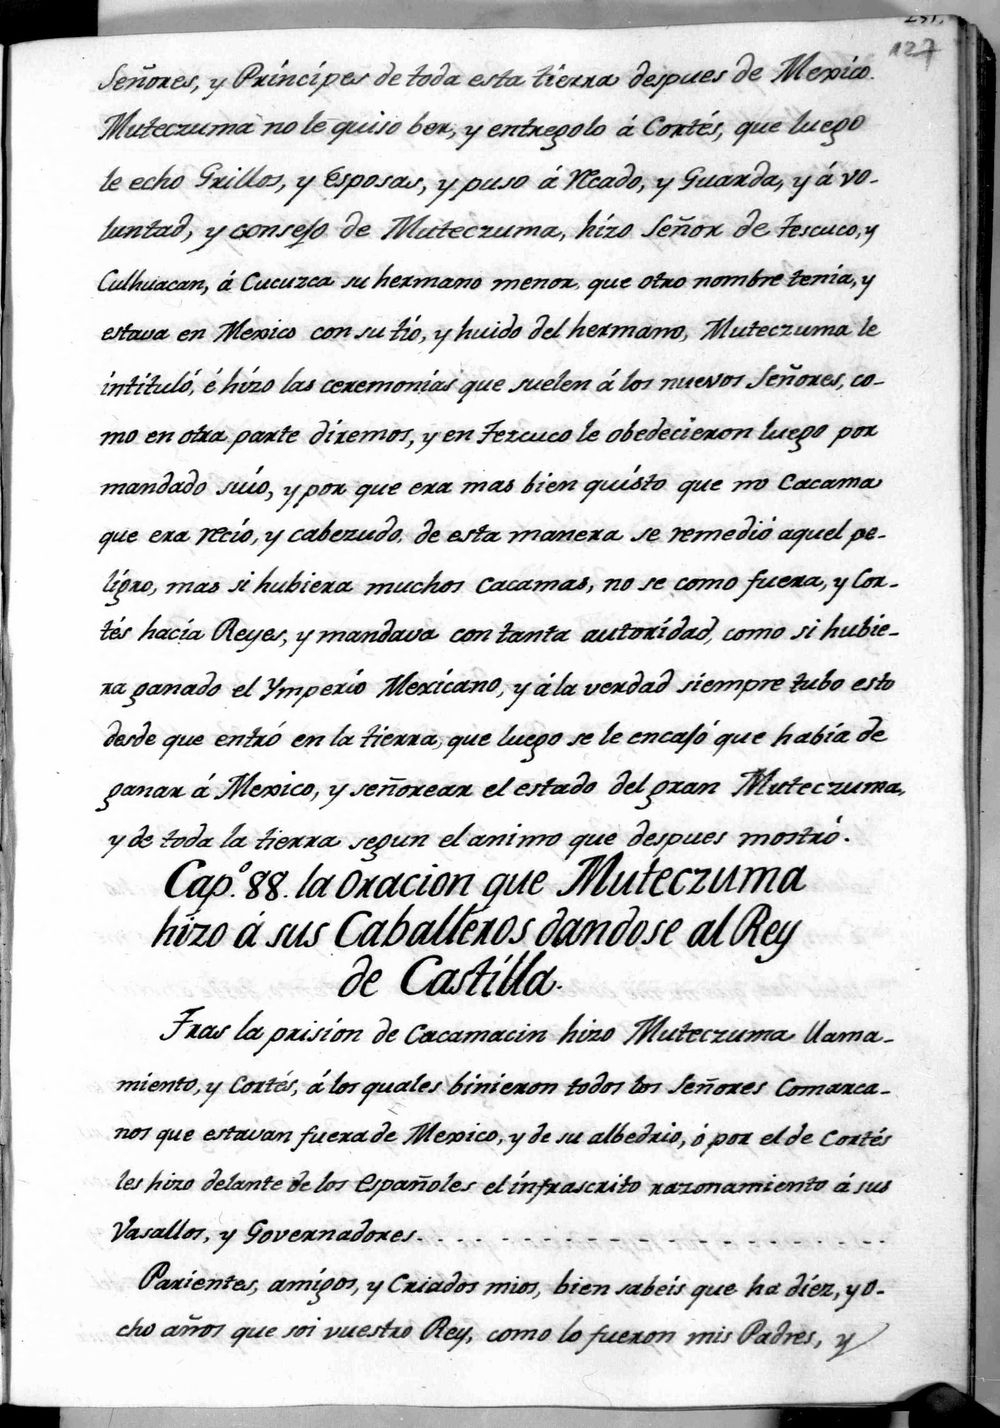 127
Señores, y Príncipes de toda esta tierra despues de Mexico.
Muteczuma no le quiso ber, y entregolo á Cortés, que luego
le echo Grillos, y Esposas, y puso á Rcado, y Guarda, y á vo-
luntad, y consejo de Muteczuma, hizo Señor de Tescuco, y
Culhuacan, á Cucuzca su hermano menor, que otro nombre tenía, y
estava en Mexico con su tío, y huido del hermano, Muteczuma le
intituló, é hizo las ceremonias que suelen á los nuevos Señores, co-
mo en otra parte diremos, y en Tezcuco le obedecieron luego por
mandado suio, y por que era mas bien quísto que no Cacama
que era Rcio, y cabezudo, de esta manera se remedió aquel pe-
ligro, mas si hubiera muchos Cacamas, no se como fuera, y Cor-
tés hacía Reyes, y mandava con tanta autoridad, como si hubie-
ra ganado el Ymperio Mexicano, y á la verdad siempre tubo esto
desde que entró en la tierra, que luego se le encajó que había de
ganar á Mexico, y señorear el estado del gran Muteczuma,
y de toda la tierra segun el animo que despues mostró.
Capº. 88. la Oracion que Muteczuma
hizo á sus Caballeros dandose al Rey
de Castilla.
Tras la prision de Cacamacin hizo Muteczuma llama-
miento, y Cortés, á los quales binieron todos los Señores Comarca-
nos que estavan fuera de Mexico, y de su albedrio, ó por el de Cortés
les hizo delante de los Españoles el infrascrito razonamiento á sus
Vasallos, y Governadores.
Parientes, amigos, y Criados mios, bien sabeis que ha diez, y o-
cho años que soi vuestro Rey, como lo fueron mis Padres, y